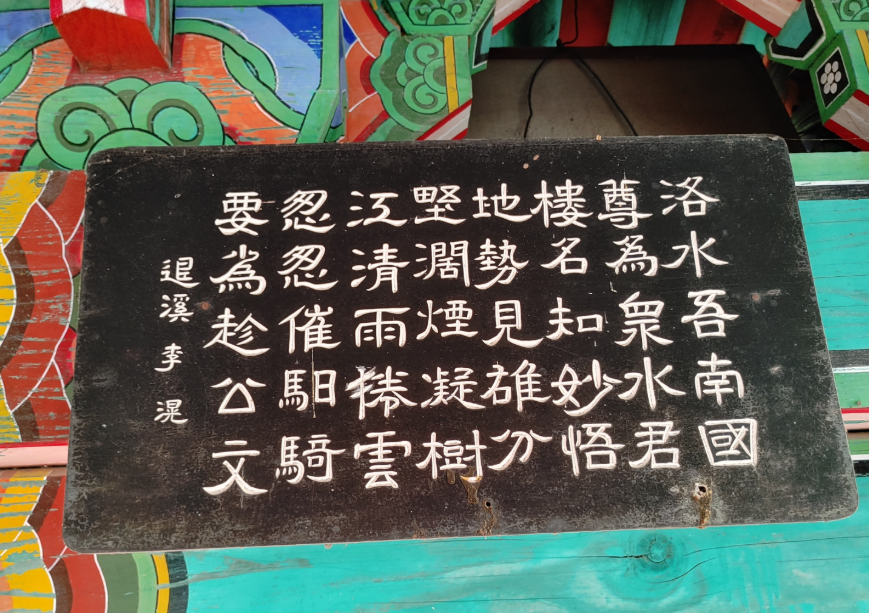 洛水吾南國
尊為衆水君
樓名知妙悟
地勢見雄分
墅濶煙凝樹
江清雨捲雲
怱怱催馹騎
要為趁公文
退溪 李滉